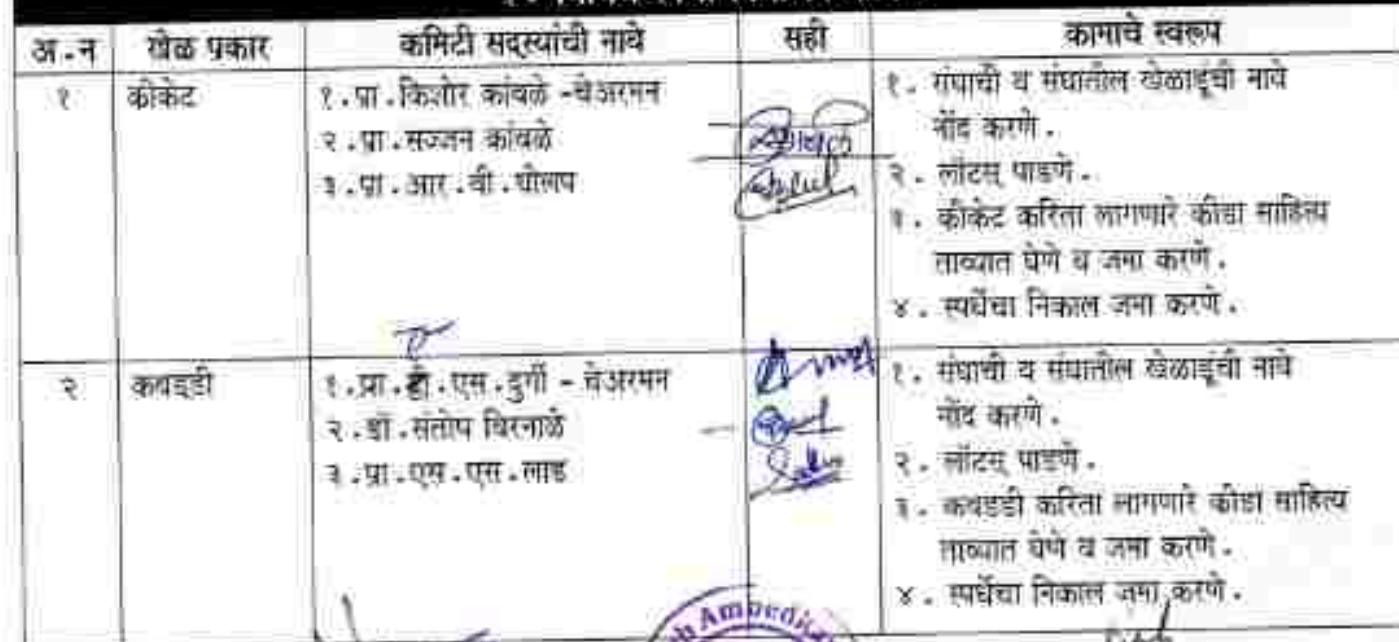 अ.न खेळ प्रकार कमिटी सदस्यांची नावे सही कामाचे स्वरूप
१ क्रीकेट
१.प्रा.किशोर कांबळे -चेअरमन
२.प्रा.सज्जन कांबळे
३.प्रा.आर.वी.घोलप
१. संघाची व संघातील खेळाडूंची नावे
नोंद करणे.
२. लॉटस् पाडणे.
३. क्रीकेट करिता लागणारे क्रीडा साहित्य
ताब्यात घेणे व जमा करणे.
४. स्पर्धेचा निकाल जमा करणे.
२ कबड्डी
१.प्रा. .एस.दुर्गी - चेअरमन
२.डॉ.संतोष चिरनाळे
३.प्रा.एस.एस.लाड
१. संघाची व संघातील खेळाडूंची नावे
नोंद करणे.
२. लॉटस् पाडणे.
३. कबड्डी करिता लागणारे क्रीडा साहित्य
ताब्यात घेणे व जमा करणे.
४. स्पर्धेचा निकाल जमा करणे.